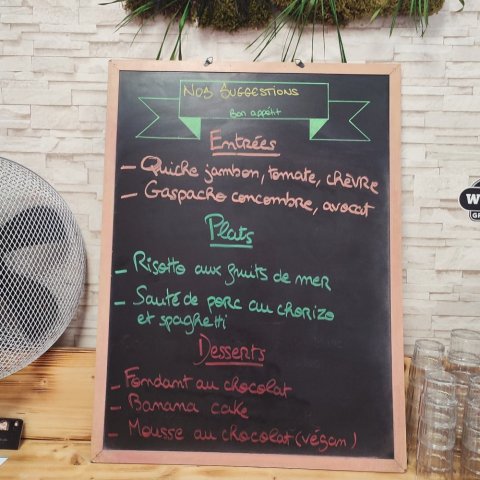 NOS SUGGESTIONS
Bon appétit
Entrées
- Quiche jambon, tomate, chèvre
- Gaspacho concombre, avocat
Plats
- Risotto aux fruits de mer
- Sauté de porc au chorizo
et spaghetti
Desserts
- Fondant au chocolat
- Banana cake
- Mousse au chocolat (végan)